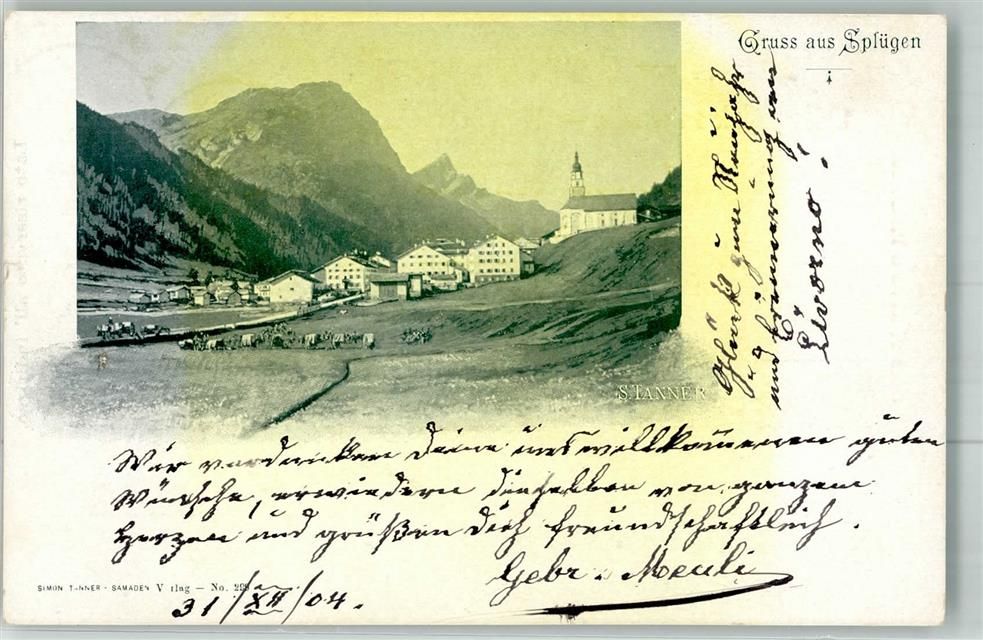 Gruss aus Splügen
Glück zum Neujahr
und Erinnerung an
Livorno!
S. TANNER
Wir verdanken Deine uns willkommenen guten
Wünsche, erwiedern dieselben von ganzem
Herzen und grüßen Dich freundschaftlich.
Gebr. Meuli
SIMON TANNER - SAMADEN Verlag — No. 299
31/XII/04.